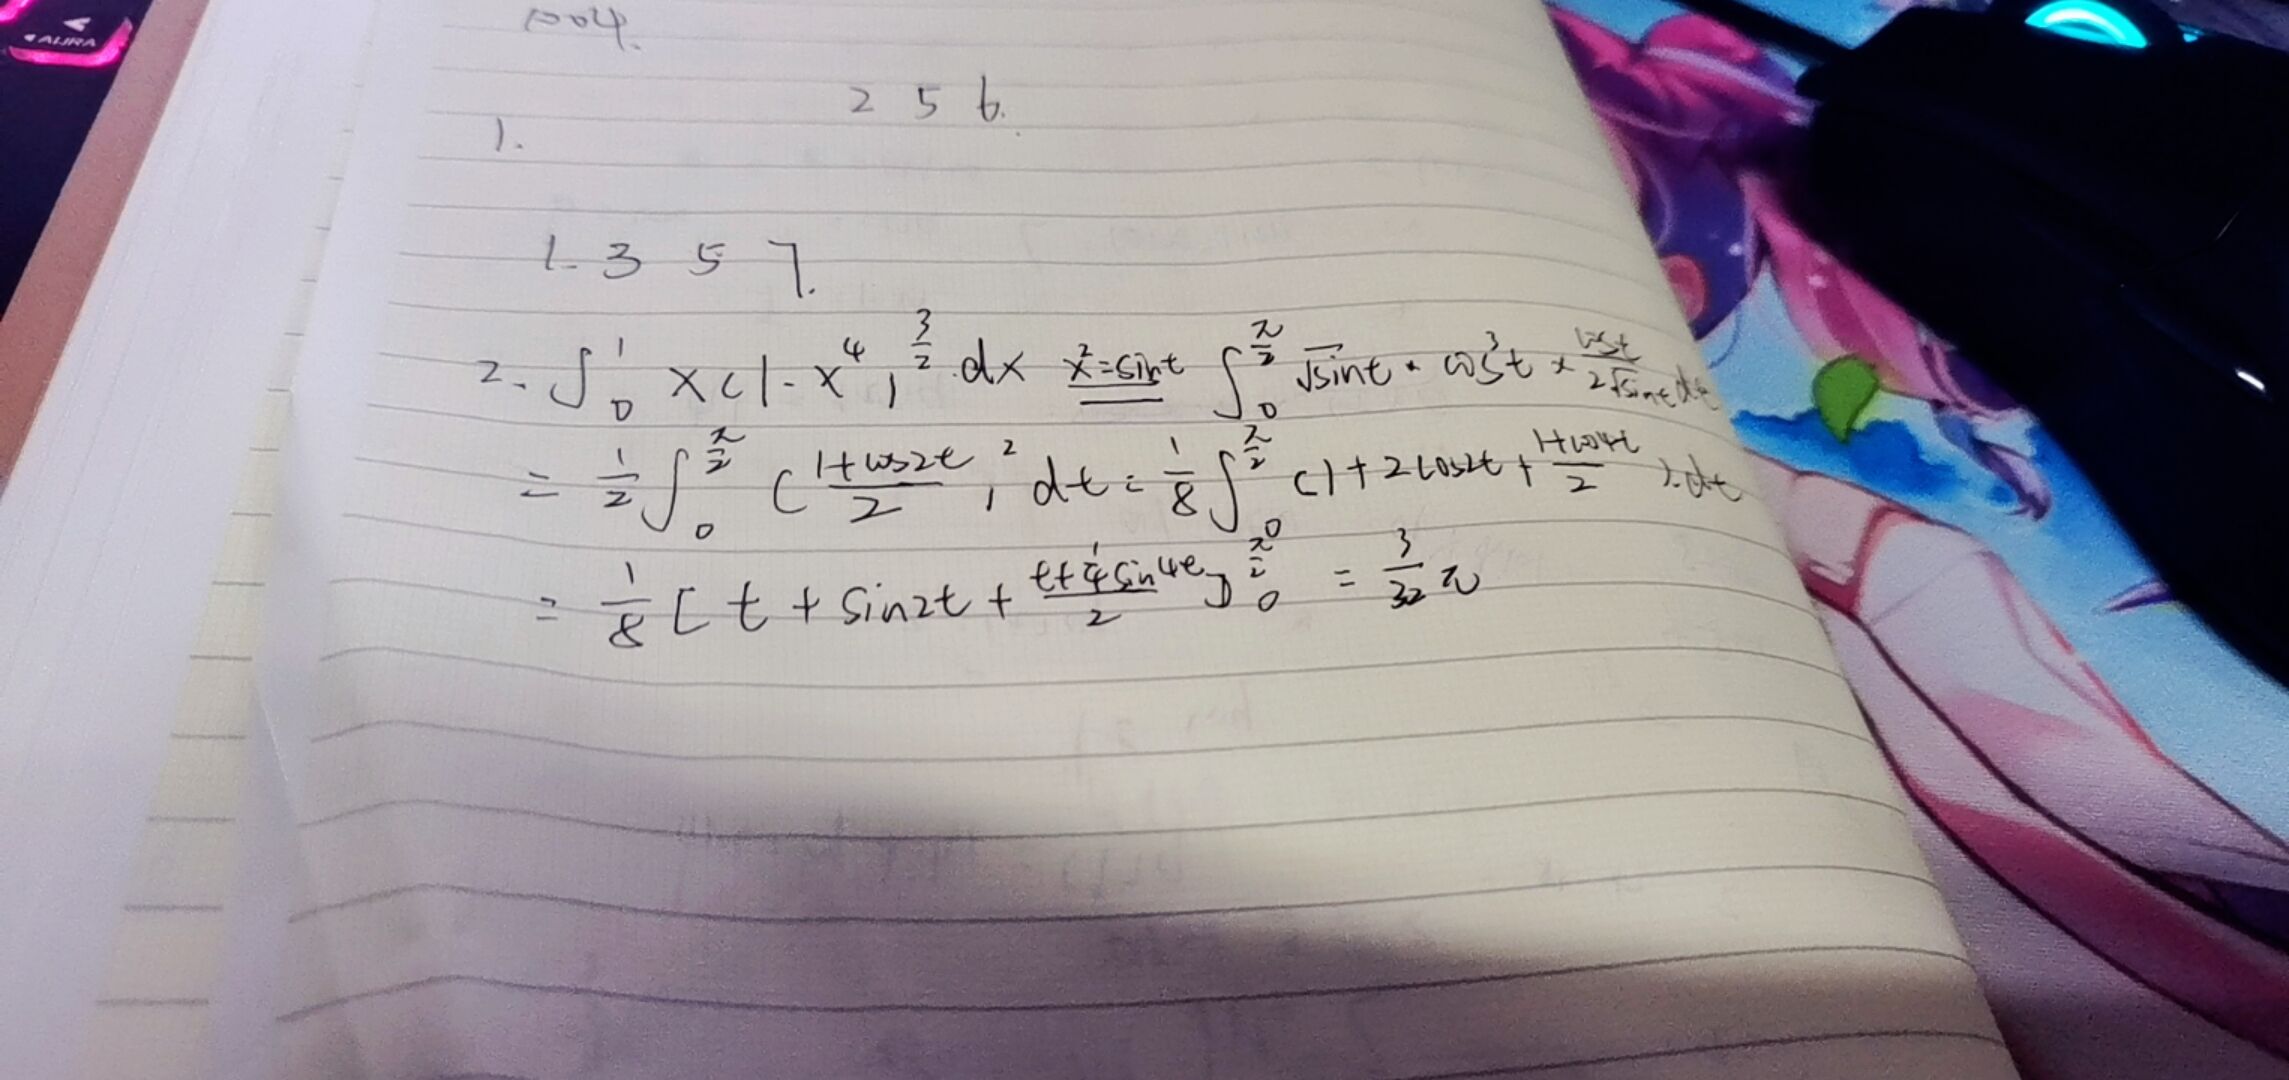 AURA
P04.
2 5 6.
1.
1. 3 5 7.
2. ∫₀¹ x(1-x⁴)^(3/2) dx x²=sint ∫₀^(π/2) √sint · cos³t × cost/(2√sint) dt
= 1/2 ∫₀^(π/2) ((1+cos2t)/2)² dt = 1/8 ∫₀^(π/2) (1+2cos2t+(1+cos4t)/2) dt
= 1/8 [t+sin2t+(t+1/4 sin4t)/2]₀^(π/2) = 3/32 π